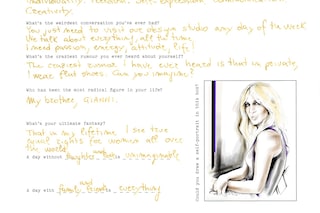 Individuality, freedom, self-expression, communication
Creativity.
What's the weirdest conversation you've ever had?
You just need to visit our design studio any day of the week
We talk about everything, all the time
I need passion, energy, attitude, life!
What's the craziest rumour you ever heard about yourself?
The craziest rumor I have ever heard is that in private,
I wear flat shoes. Can you imagine?
Who has been the most radical figure in your life?
My brother, Gianni.
What's your ultimate fantasy?
That in my lifetime I see true
equal rights for women all over
the world.
A day without laughter and is unimaginable
A day with family, friends is everything
Could you draw a self-portrait in this box?